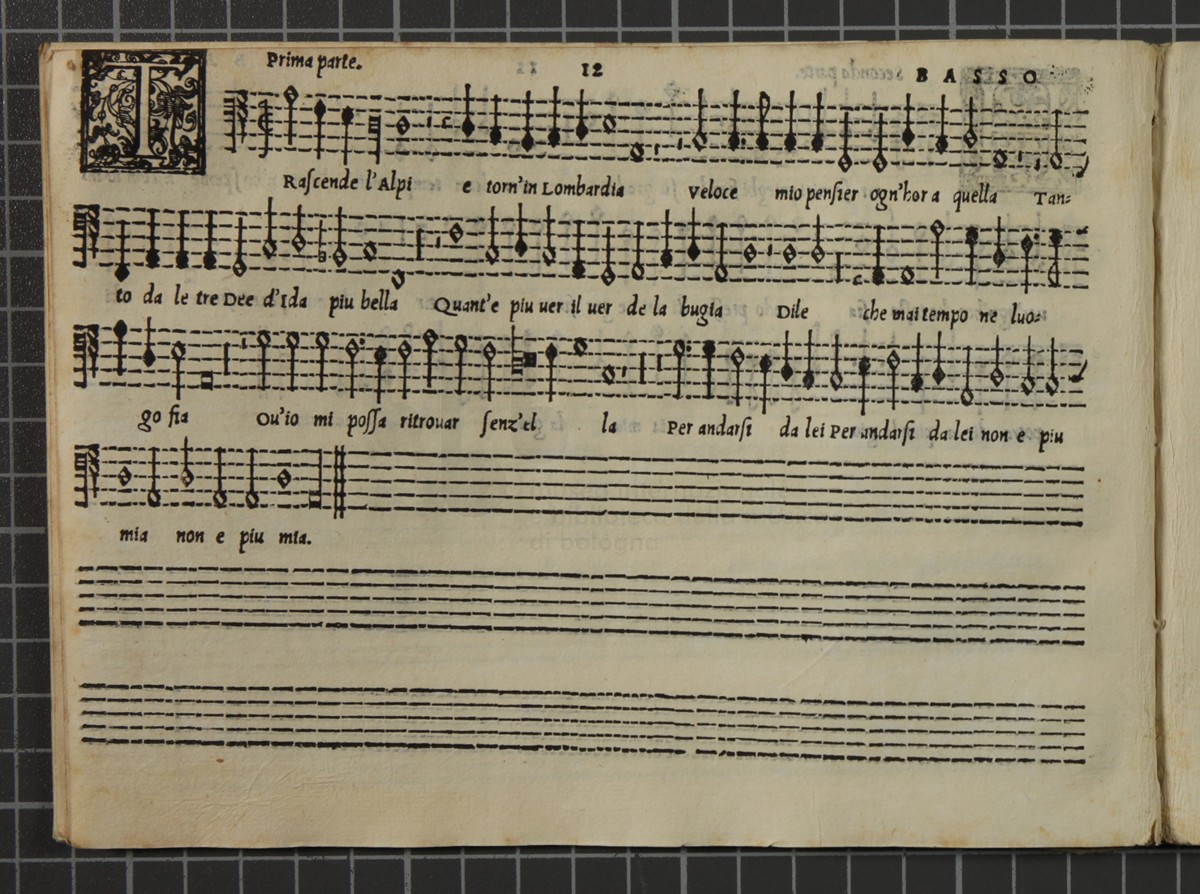 Prima parte. 12 BASSO
TRascende l'Alpi e torn'in Lombardia veloce mio pensier ogn'hor a quella Tan-
to da le tre Dee d'Ida piu bella Quant'e piu uer il uer de la bugia Dile che mai tempo ne luo-
go fia Ou'io mi possa ritrouar senz'el la Per andarsi da lei Per andarsi da lei non e piu
mia non e piu mia.
di bologna